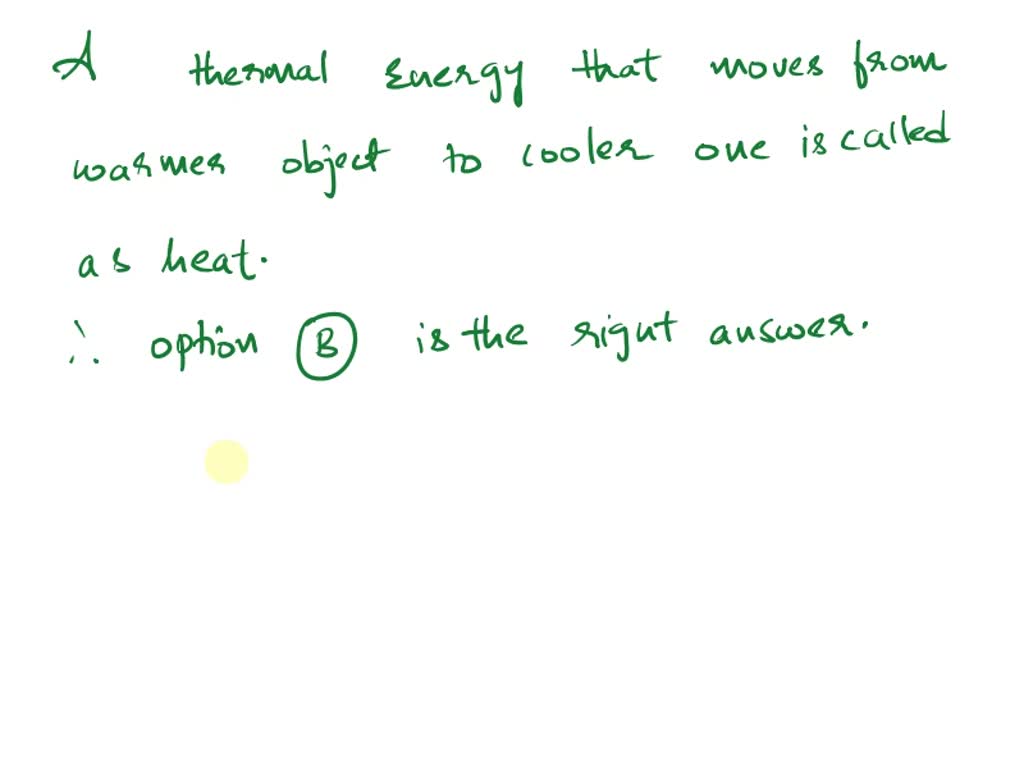 A thermal Energy that moves from
warmer object to cooler one is called
as heat.
∴ option B is the right answer.